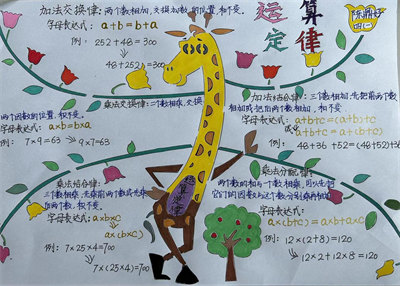 运算定律
陈鼎好
四(一)
加法交换律:两个数相加,交换加数的位置,和不变。
字母表达式: a+b=b+a
例: 252+48=300
48+252=300
乘法交换律:两个数相乘,交换
两个因数的位置,积不变。
字母表达式:
a×b=b×a
例: 7×9=63 9×7=63
加法结合律:三个数相加,先把前两个数
相加或把后两个数相加,和不变。
字母表达式: a+b+c=(a+b)+c
或
a+b+c=a+(b+c)
例: 48+36+52=(48+52)+36
乘法结合律:
三个数相乘,先乘前两个数或先乘
后两个数,积不变。
字母表达式: a×b×c
a×(b×c)
例: 7×25×4=700
7×(25×4)=700
运算定律
乘法分配律:
两个数的和与一个数相乘,可以先把
它们的因数与这个数分别乘再相加
字母表达式:
a×(b+c)=a×b+a×c
例: 12×(2+8)=120
12×2+12×8=120